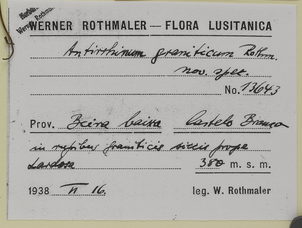 Herbar.
Werner Rothm.
WERNER ROTHMALER — FLORA LUSITANICA
Antirrhinum graniticum Rothm.
nov. spec.
No. 13643
Prov. Beira baixa Castelo Branco
in rupibus graniticis siccis prope
Lardosa 380 m. s. m.
1938 VI 16. leg. W. Rothmaler